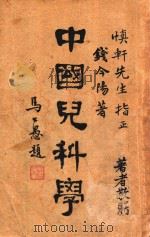 慎軒先生指正
著者
錢今陽著
中國兒科學
馬公愚題